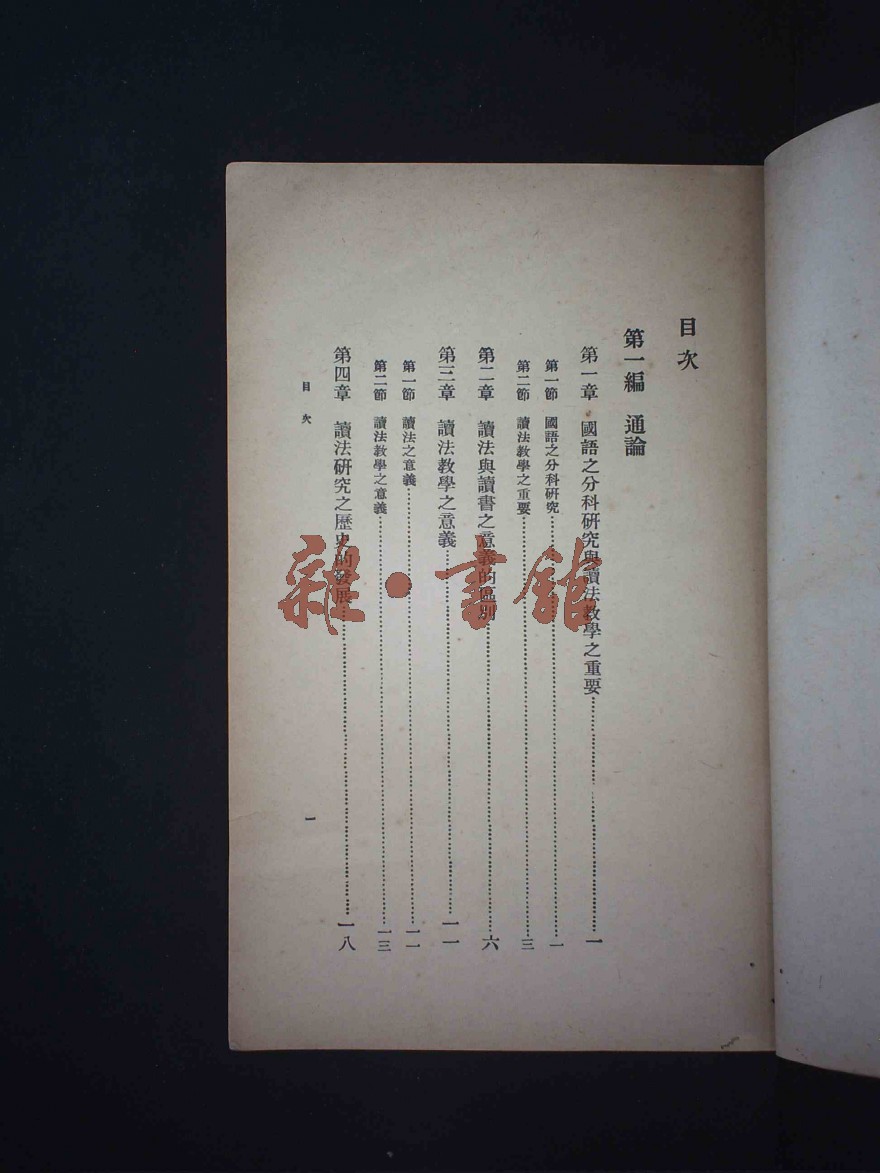 目次
第一編　通論
第一章　國語之分科研究與讀法教學之重要……一
第一節　國語之分科研究……一
第二節　讀法教學之重要……三
第二章　讀法與讀書之意義的區別……六
第三章　讀法教學之意義……一一
第一節　讀法之意義……一一
第二節　讀法教學之意義……一三
第四章　讀法研究之歷史的發展……一八
目次
一
雜·書館